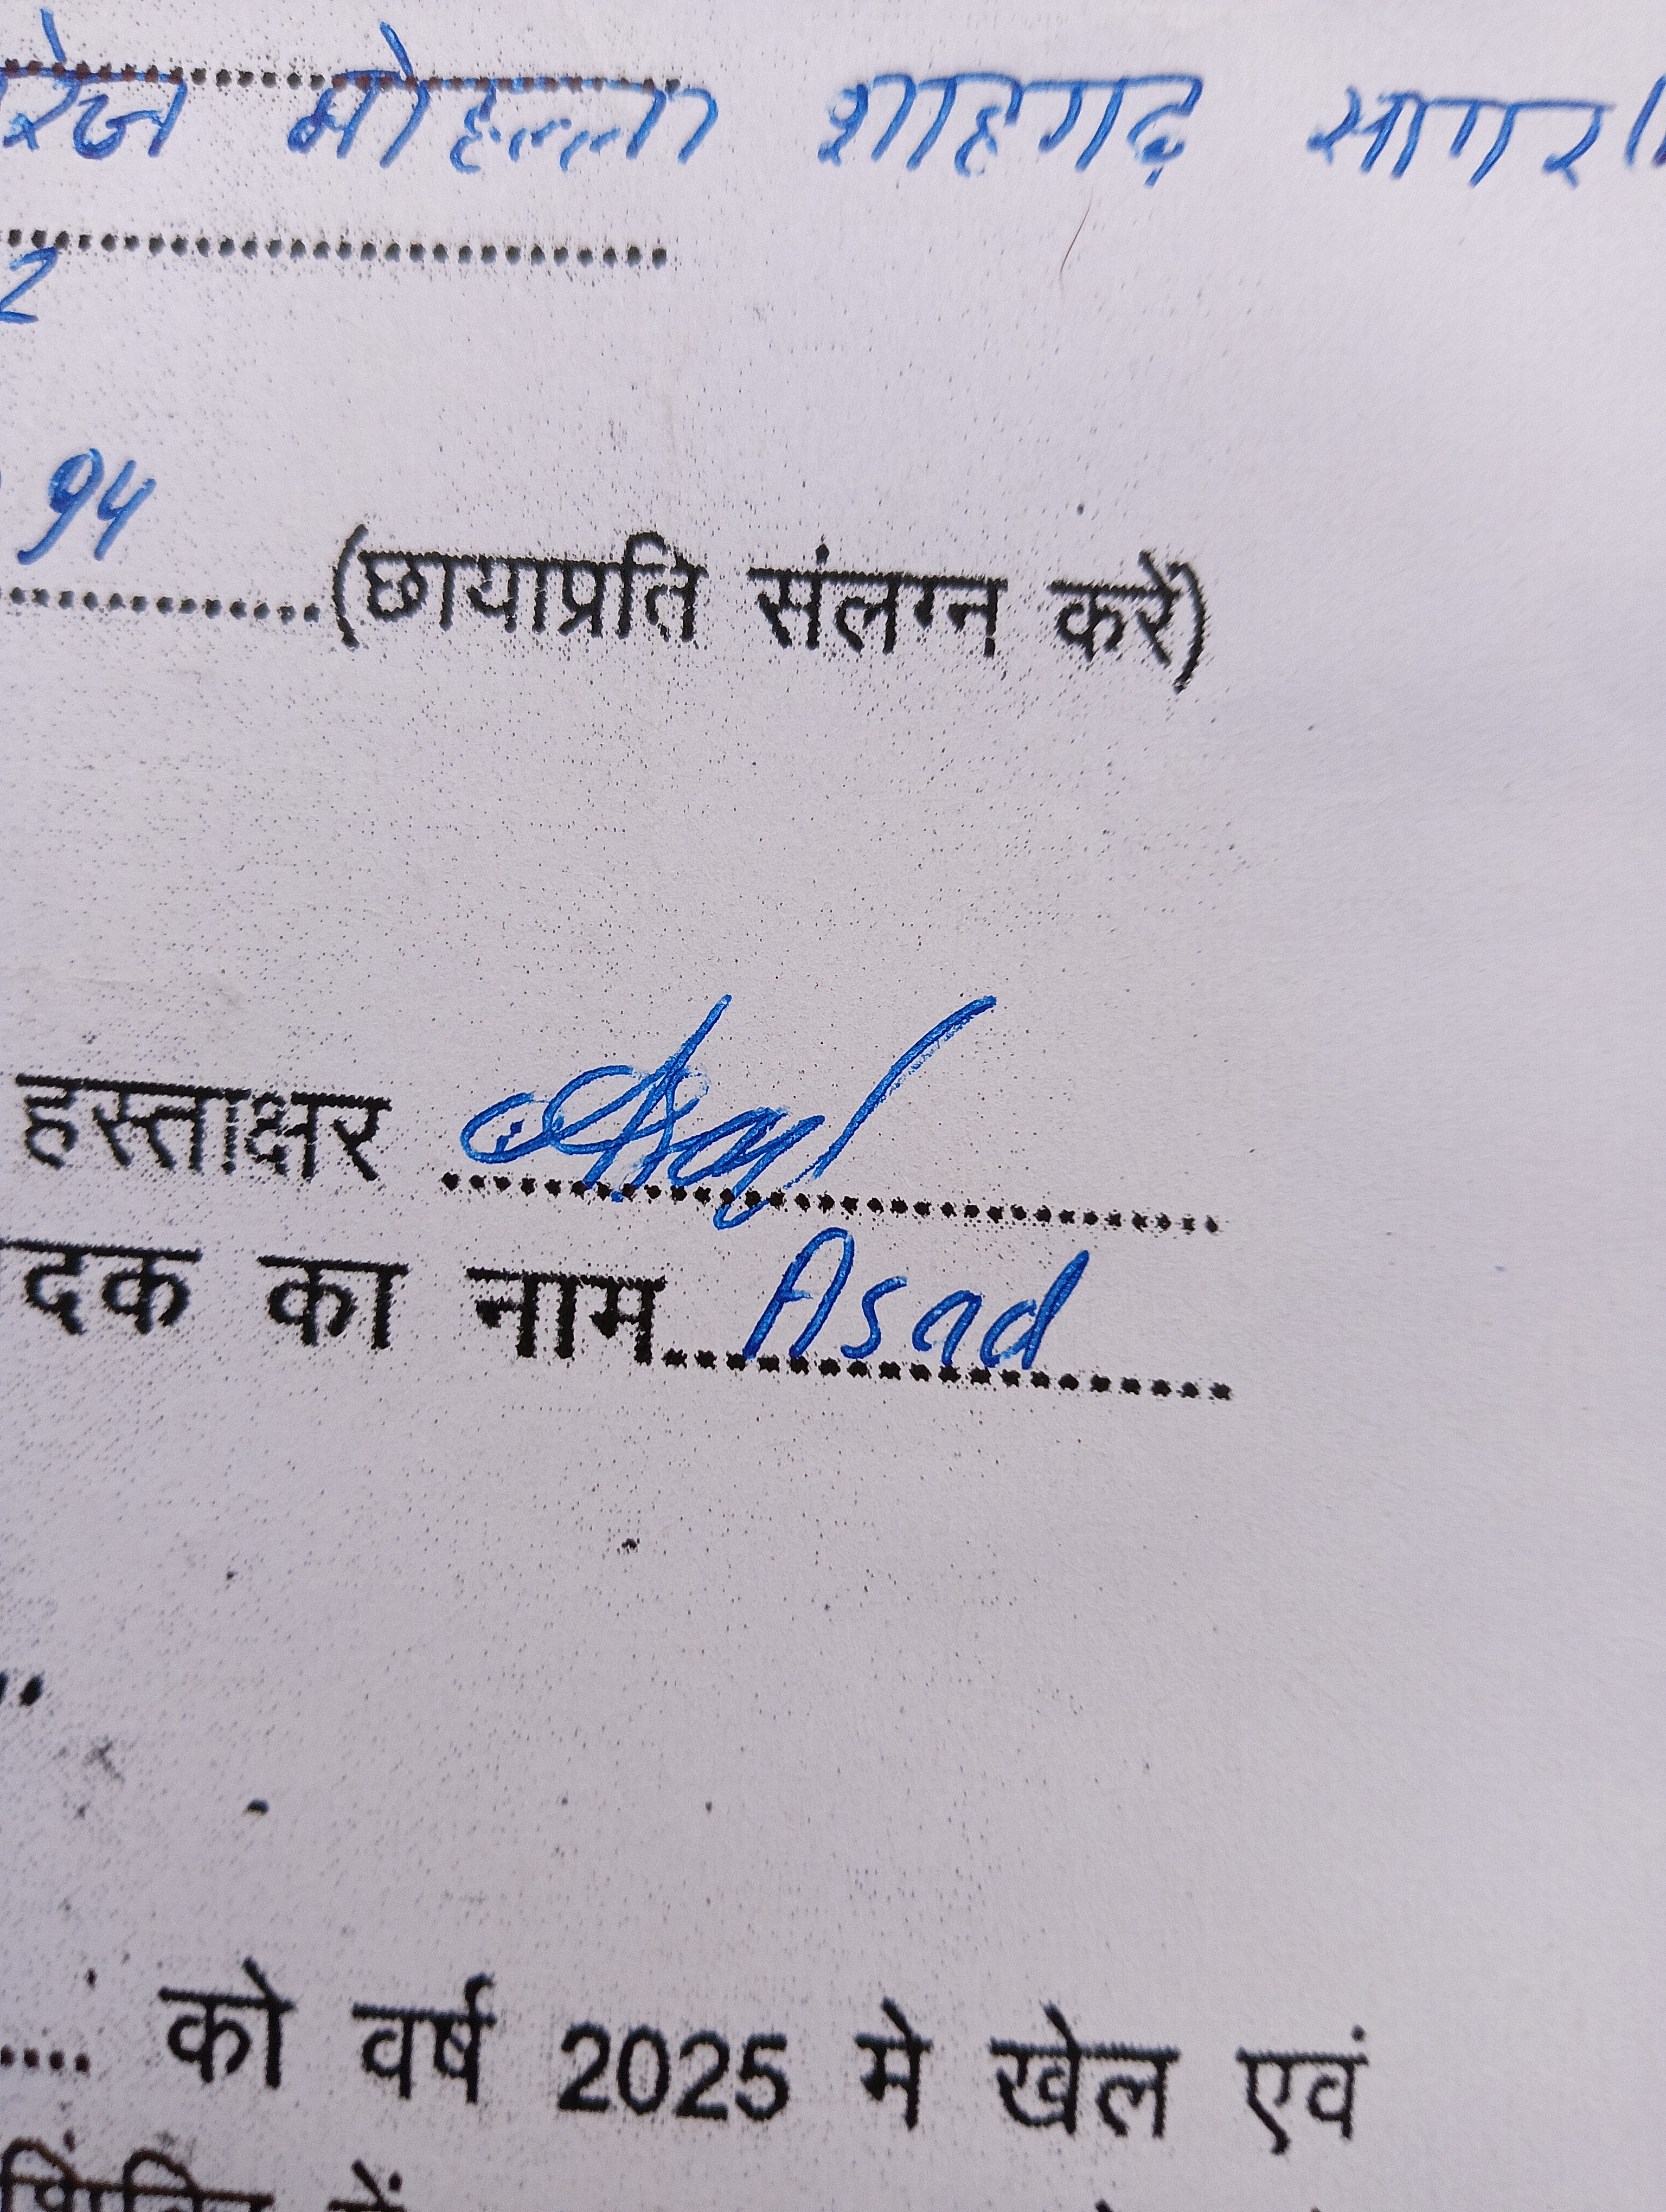 मोहल्ला शाहगढ़ सागर
2
94
(छायाप्रति संलग्न करें)
हस्ताक्षर
दक का नाम Asad
को वर्ष 2025 मे खेल एवं